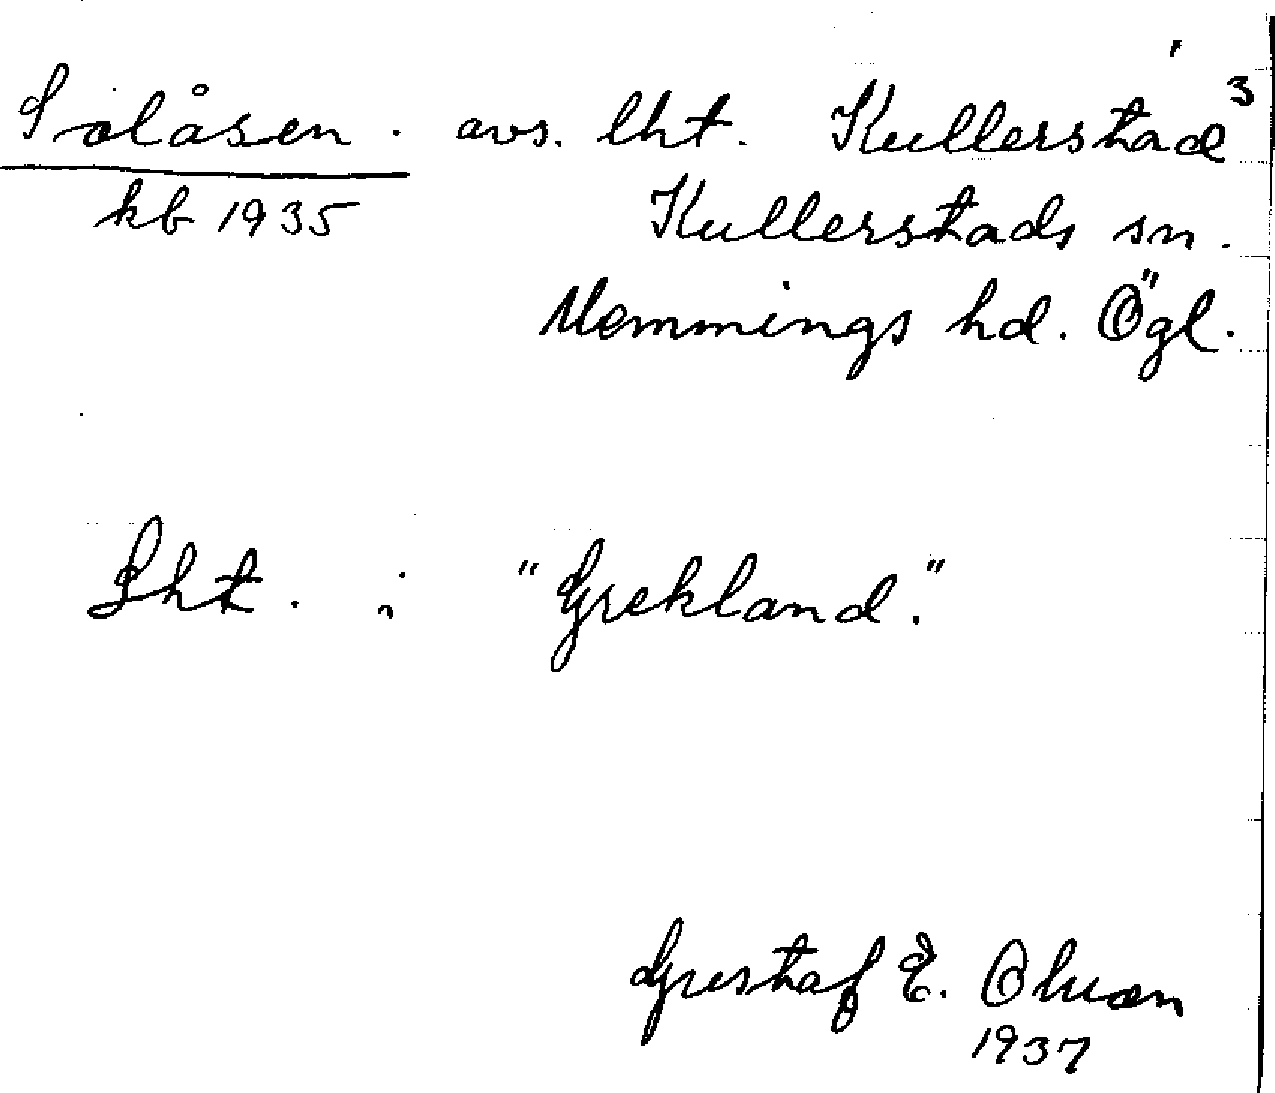 Solåsen. avs. lht. Kullerstad 3
kb 1935 Kullerstads sn.
Memmings hd. Ögl.
Lht. i "Grekland."
Gustaf E. Olsson
1937